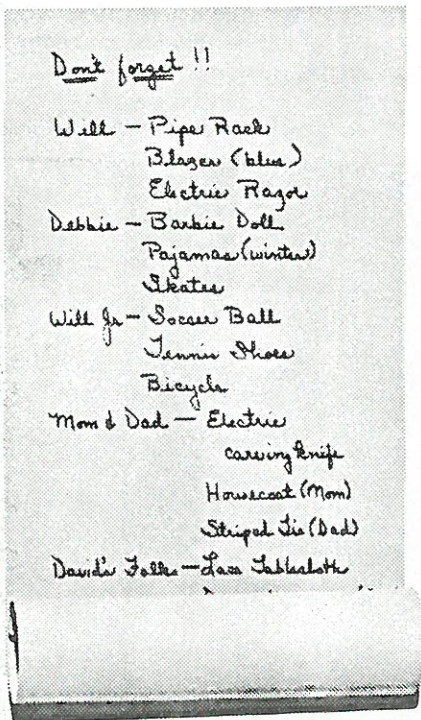 Don't forget !!
Will - Pipe Rack
Blazer (blue)
Electric Razor
Debbie - Barbie Doll
Pajamas (winter)
Skates
Will Jr - Soccer Ball
Tennis Shoes
Bicycle
Mom & Dad - Electric
carving knife
Housecoat (Mom)
Striped Tie (Dad)
David's Folks - Lace Tablecloth